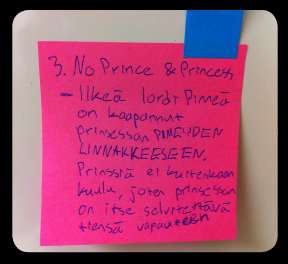 3. No Prince & Princess
- Ilkeä lordi Pimeä
on kaapannut
prinsessan PIMEYDEN
LINNAKKEESEEN.
Prinssiä ei kuitenkaan
kuulu, joten prinsessan
on itse selvitettävä
tiensä vapauteen